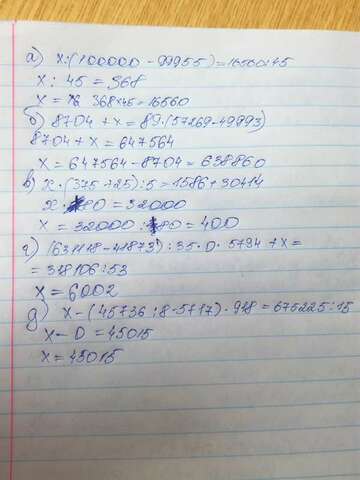 а) x:(100000 - 99955) = 16560:45
x : 45 = 368
x = 368×45 = 16560
б) 8704 + x = 89·(57269-49993)
8704 + x = 647564
x = 647564 - 8704 = 638860
в) x·(375+25):5 = 1586+30414
x · 80 = 32000
x = 32000 : 80 = 400
г) (631118-41873) : 35·0·5794 + x =
= 318106:53
x = 6002
д) x - (45736:8-5717)·918 = 675225:15
x - 0 = 45015
x = 45015